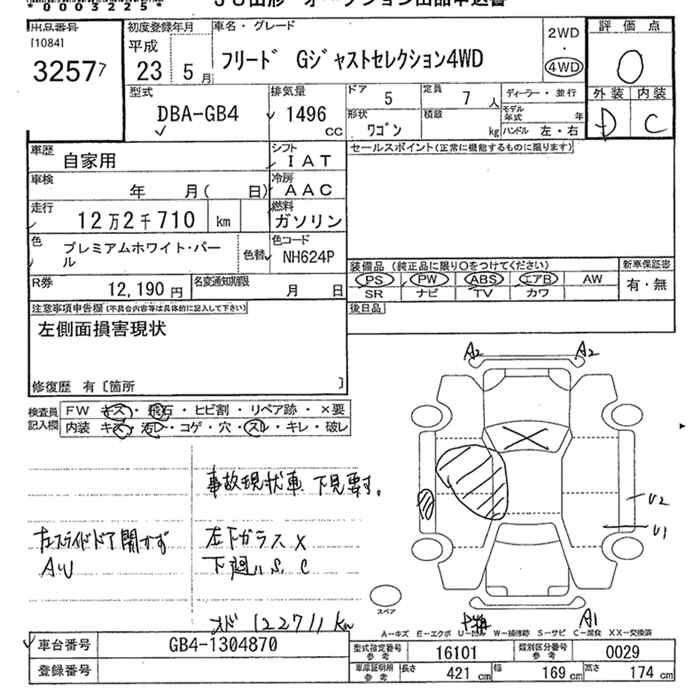 *0003225*
JU山形 オークション出品申込書
出品番号
[1084]
32577
初度登録年月
平成
23 5月
車名・グレード
フリード Gジャストセレクション4WD
2WD
・
4WD
評価点
0
外装 内装
D C
型式
DBA-GB4
排気量
1496
cc
ドア
5
定員
7人
ディーラー・並行
モデル年式 年
形状
ワゴン
積載
kg
ハンドル 左・右
車歴
自家用
シフト
IAT
セールスポイント(正常に機能するものに限ります)
車検
年 月( 日)
冷房
AAC
走行
12万2千710 km
燃料
ガソリン
色
プレミアムホワイト・パール
色替
色コード
NH624P
装備品 (純正品に限り○をつけてください)
新車保証書
PS PW ABS エアB AW
有・無
SR ナビ TV カワ
R券
12,190円
名変通知期限
月 日
後日品
注意事項申告欄(不具合内容等は具体的に記入して下さい)
左側面損害現状
修復歴 有〔箇所 〕
検査員記入欄
FW キズ・飛石・ヒビ割・リペア跡・×要
内装 キズ・汚レ・コゲ・穴・スレ・キレ・破レ
A2 A2
事故現状車 下見要す。
左スライドドア開かず
AW
左下ガラスX
下廻りS.C
U2
U1
スペア
オド 122711km
A1
A-キズ E-エクボ U-凹 W-補修跡 S-サビ C-腐食 XX-交換済
車台番号
GB4-1304870
型式指定番号
参考
16101
類別区分番号
参考
0029
登録番号
車庫証明用
参考
長さ 421 cm 幅 169 cm 高さ 174 cm